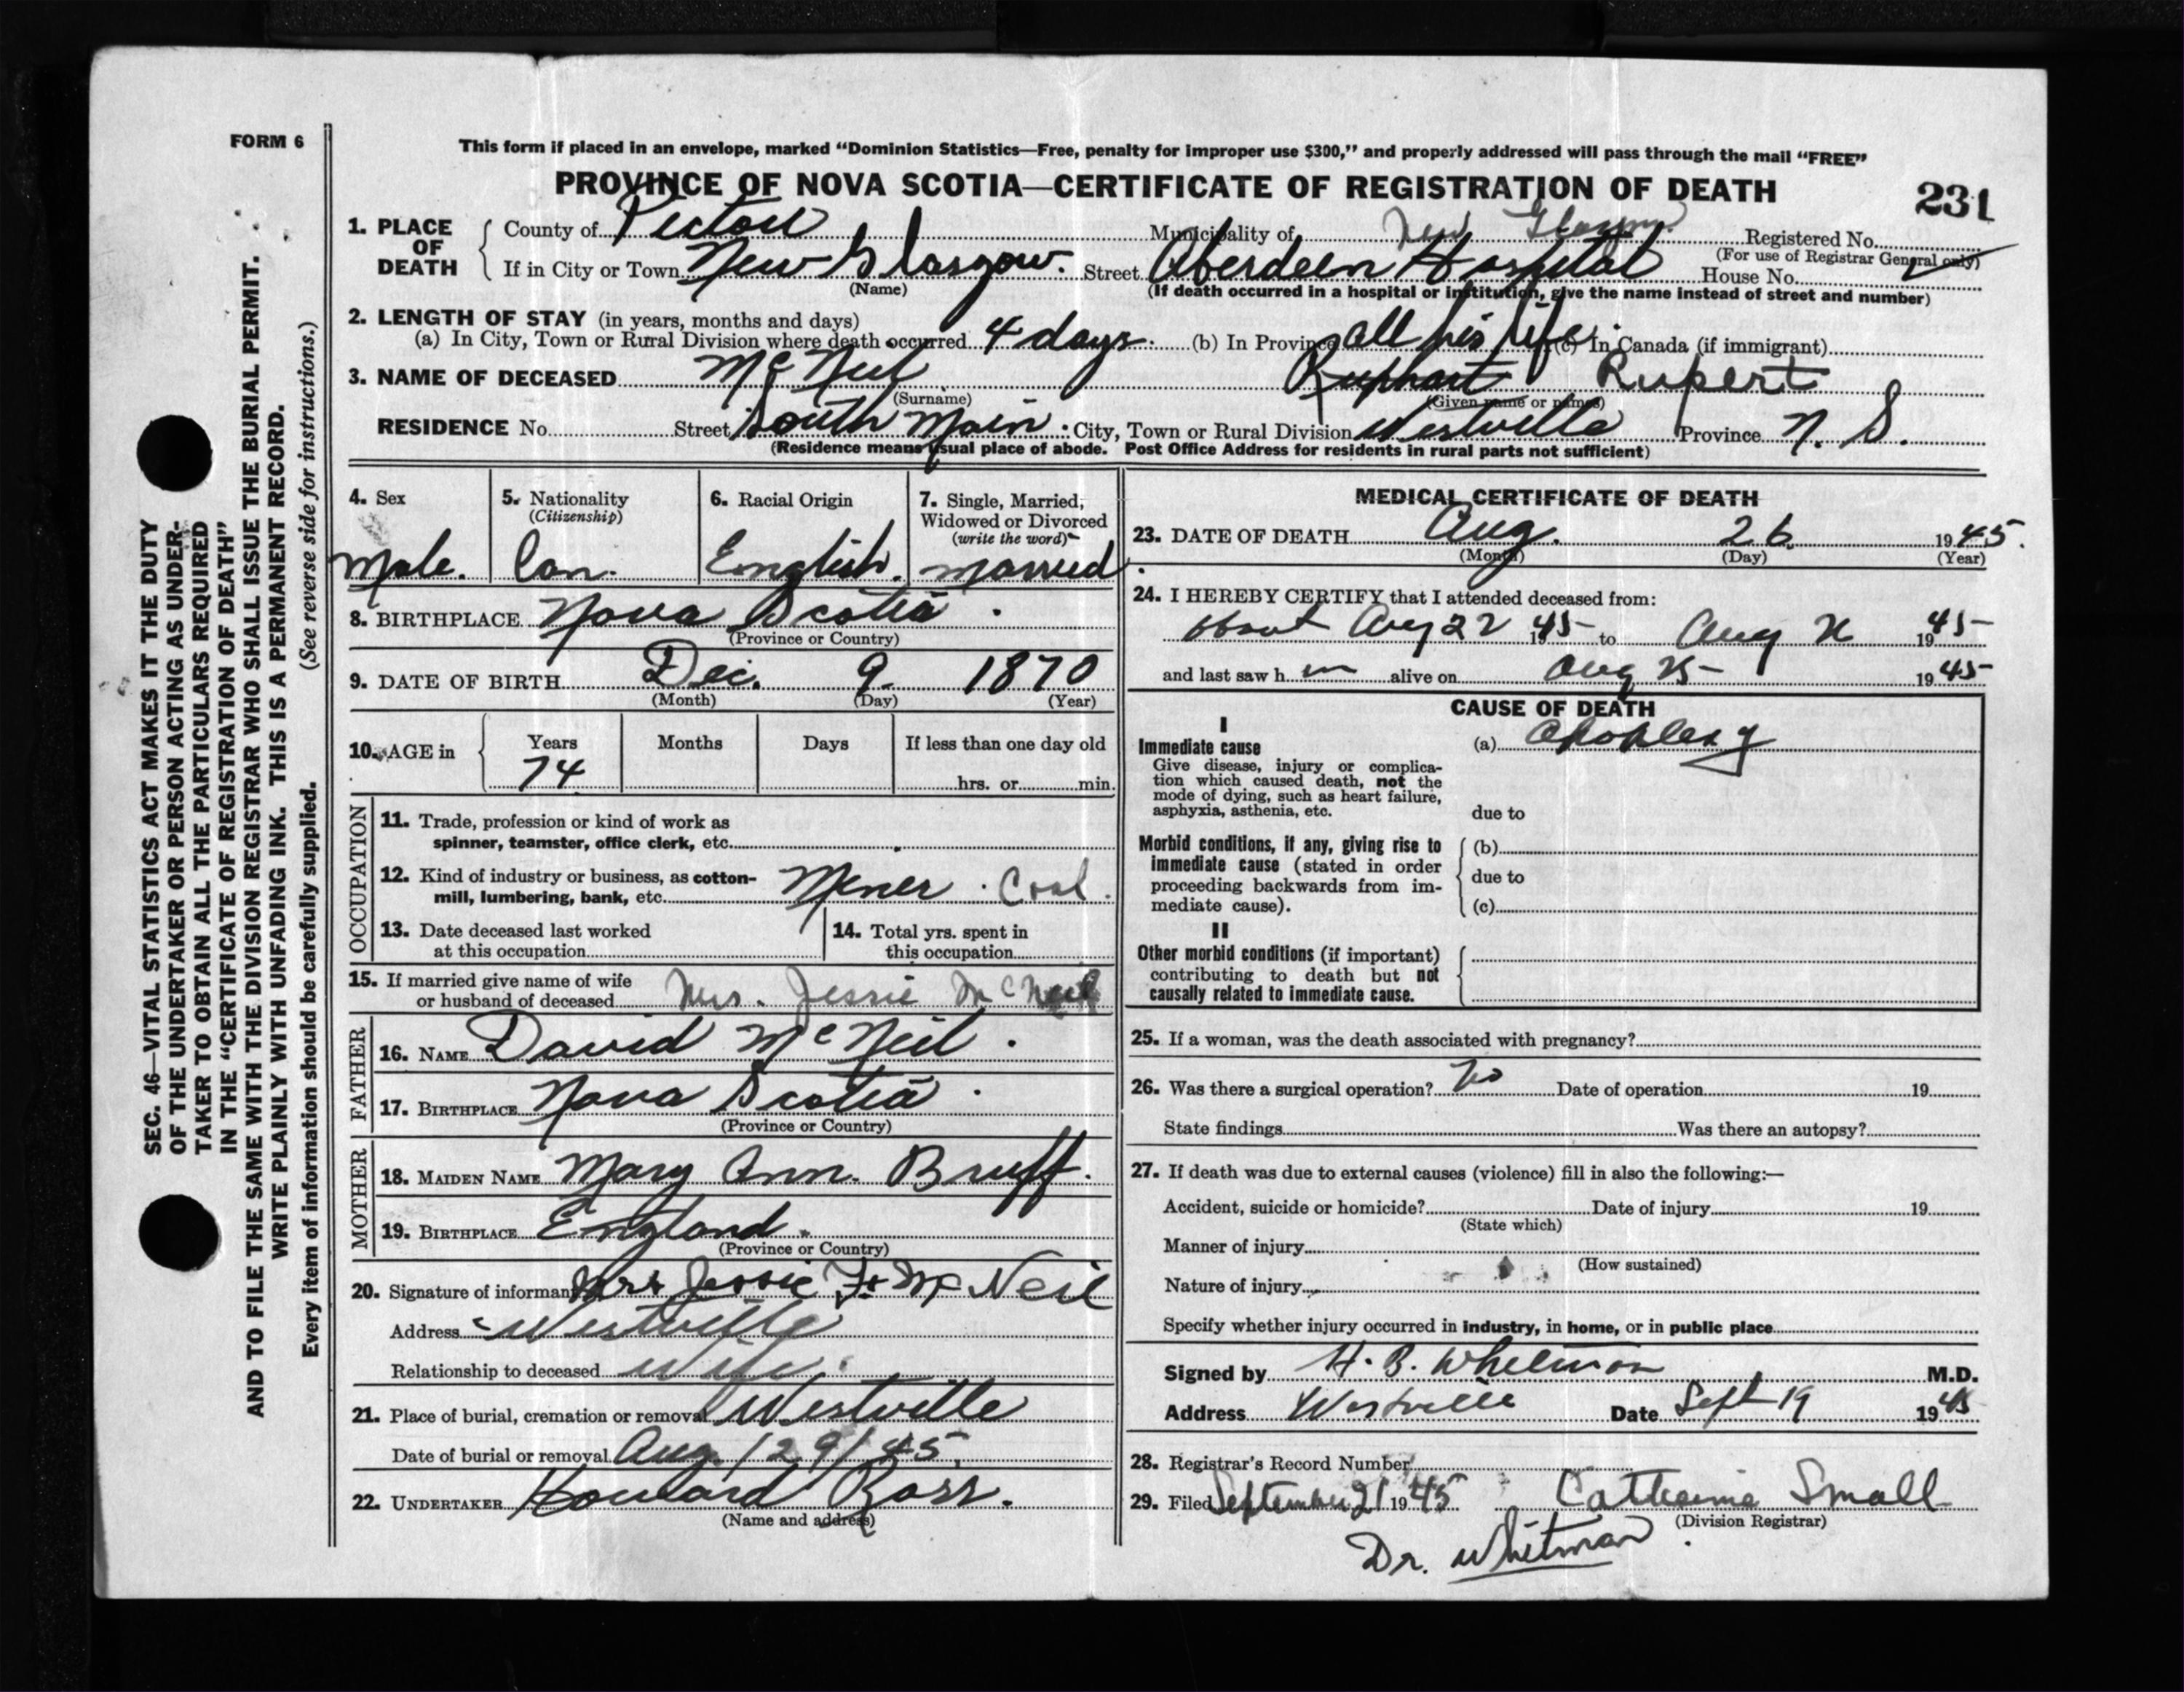 FORM 6
SEC. 46—VITAL STATISTICS ACT MAKES IT THE DUTY
OF THE UNDERTAKER OR PERSON ACTING AS UNDER-
TAKER TO OBTAIN ALL THE PARTICULARS REQUIRED
IN THE "CERTIFICATE OF REGISTRATION OF DEATH"
AND TO FILE THE SAME WITH THE DIVISION REGISTRAR WHO SHALL ISSUE THE BURIAL PERMIT.
WRITE PLAINLY WITH UNFADING INK. THIS IS A PERMANENT RECORD.
Every item of information should be carefully supplied. (See reverse side for instructions.)
This form if placed in an envelope, marked "Dominion Statistics—Free, penalty for improper use $300," and properly addressed will pass through the mail "FREE"
PROVINCE OF NOVA SCOTIA—CERTIFICATE OF REGISTRATION OF DEATH
231
1. PLACE OF DEATH
County of Pictou Municipality of New Glasgow Registered No.
(For use of Registrar General only)
If in City or Town New Glasgow. Street Aberdeen Hospital House No.
(Name) (If death occurred in a hospital or institution, give the name instead of street and number)
2. LENGTH OF STAY (in years, months and days)
(a) In City, Town or Rural Division where death occurred 4 days. (b) In Province all his life. (c) In Canada (if immigrant)
3. NAME OF DECEASED McNeil Ruphart Rupert
(Surname) (Given name or names)
RESIDENCE No. Street South Main. City, Town or Rural Division Westville Province N. S.
(Residence means usual place of abode. Post Office Address for residents in rural parts not sufficient)
4. Sex
Male.
5. Nationality
(Citizenship)
Can.
6. Racial Origin
English.
7. Single, Married,
Widowed or Divorced
(write the word)
married.
8. BIRTHPLACE Nova Scotia.
(Province or Country)
9. DATE OF BIRTH Dec. 9. 1870
(Month) (Day) (Year)
10. AGE in
Years Months Days If less than one day old
74 hrs. or min.
OCCUPATION
11. Trade, profession or kind of work as
spinner, teamster, office clerk, etc.
12. Kind of industry or business, as cotton-
mill, lumbering, bank, etc. Miner. Coal.
13. Date deceased last worked
at this occupation
14. Total yrs. spent in
this occupation
15. If married give name of wife
or husband of deceased Mrs. Jessie McNeil
FATHER
16. NAME David McNeil.
17. BIRTHPLACE Nova Scotia.
(Province or Country)
MOTHER
18. MAIDEN NAME Mary Ann. Bruff.
19. BIRTHPLACE England.
(Province or Country)
20. Signature of informant Mrs Jessie F. McNeil
Address Westville
Relationship to deceased wife.
21. Place of burial, cremation or removal Westville
Date of burial or removal Aug. /29/45.
22. UNDERTAKER Howard Ross.
(Name and address)
MEDICAL CERTIFICATE OF DEATH
23. DATE OF DEATH Aug. 26 1945.
(Month) (Day) (Year)
24. I HEREBY CERTIFY that I attended deceased from:
about Aug 22 1945 to Aug 26 1945
and last saw h im alive on Aug 25 1945
CAUSE OF DEATH
I
Immediate cause
Give disease, injury or complica-
tion which caused death, not the
mode of dying, such as heart failure,
asphyxia, asthenia, etc.
(a) Apoplexy
due to
Morbid conditions, if any, giving rise to
immediate cause (stated in order
proceeding backwards from im-
mediate cause).
(b)
due to
(c)
II
Other morbid conditions (if important)
contributing to death but not
causally related to immediate cause.
25. If a woman, was the death associated with pregnancy?
26. Was there a surgical operation? No Date of operation 19
State findings Was there an autopsy?
27. If death was due to external causes (violence) fill in also the following:—
Accident, suicide or homicide? Date of injury 19
(State which)
Manner of injury
(How sustained)
Nature of injury
Specify whether injury occurred in industry, in home, or in public place
Signed by H. B. Whitman M.D.
Address Westville Date Sept 19 1945
28. Registrar's Record Number
29. Filed September 21 1945 Catherine Small
(Division Registrar)
Dr. Whitman.